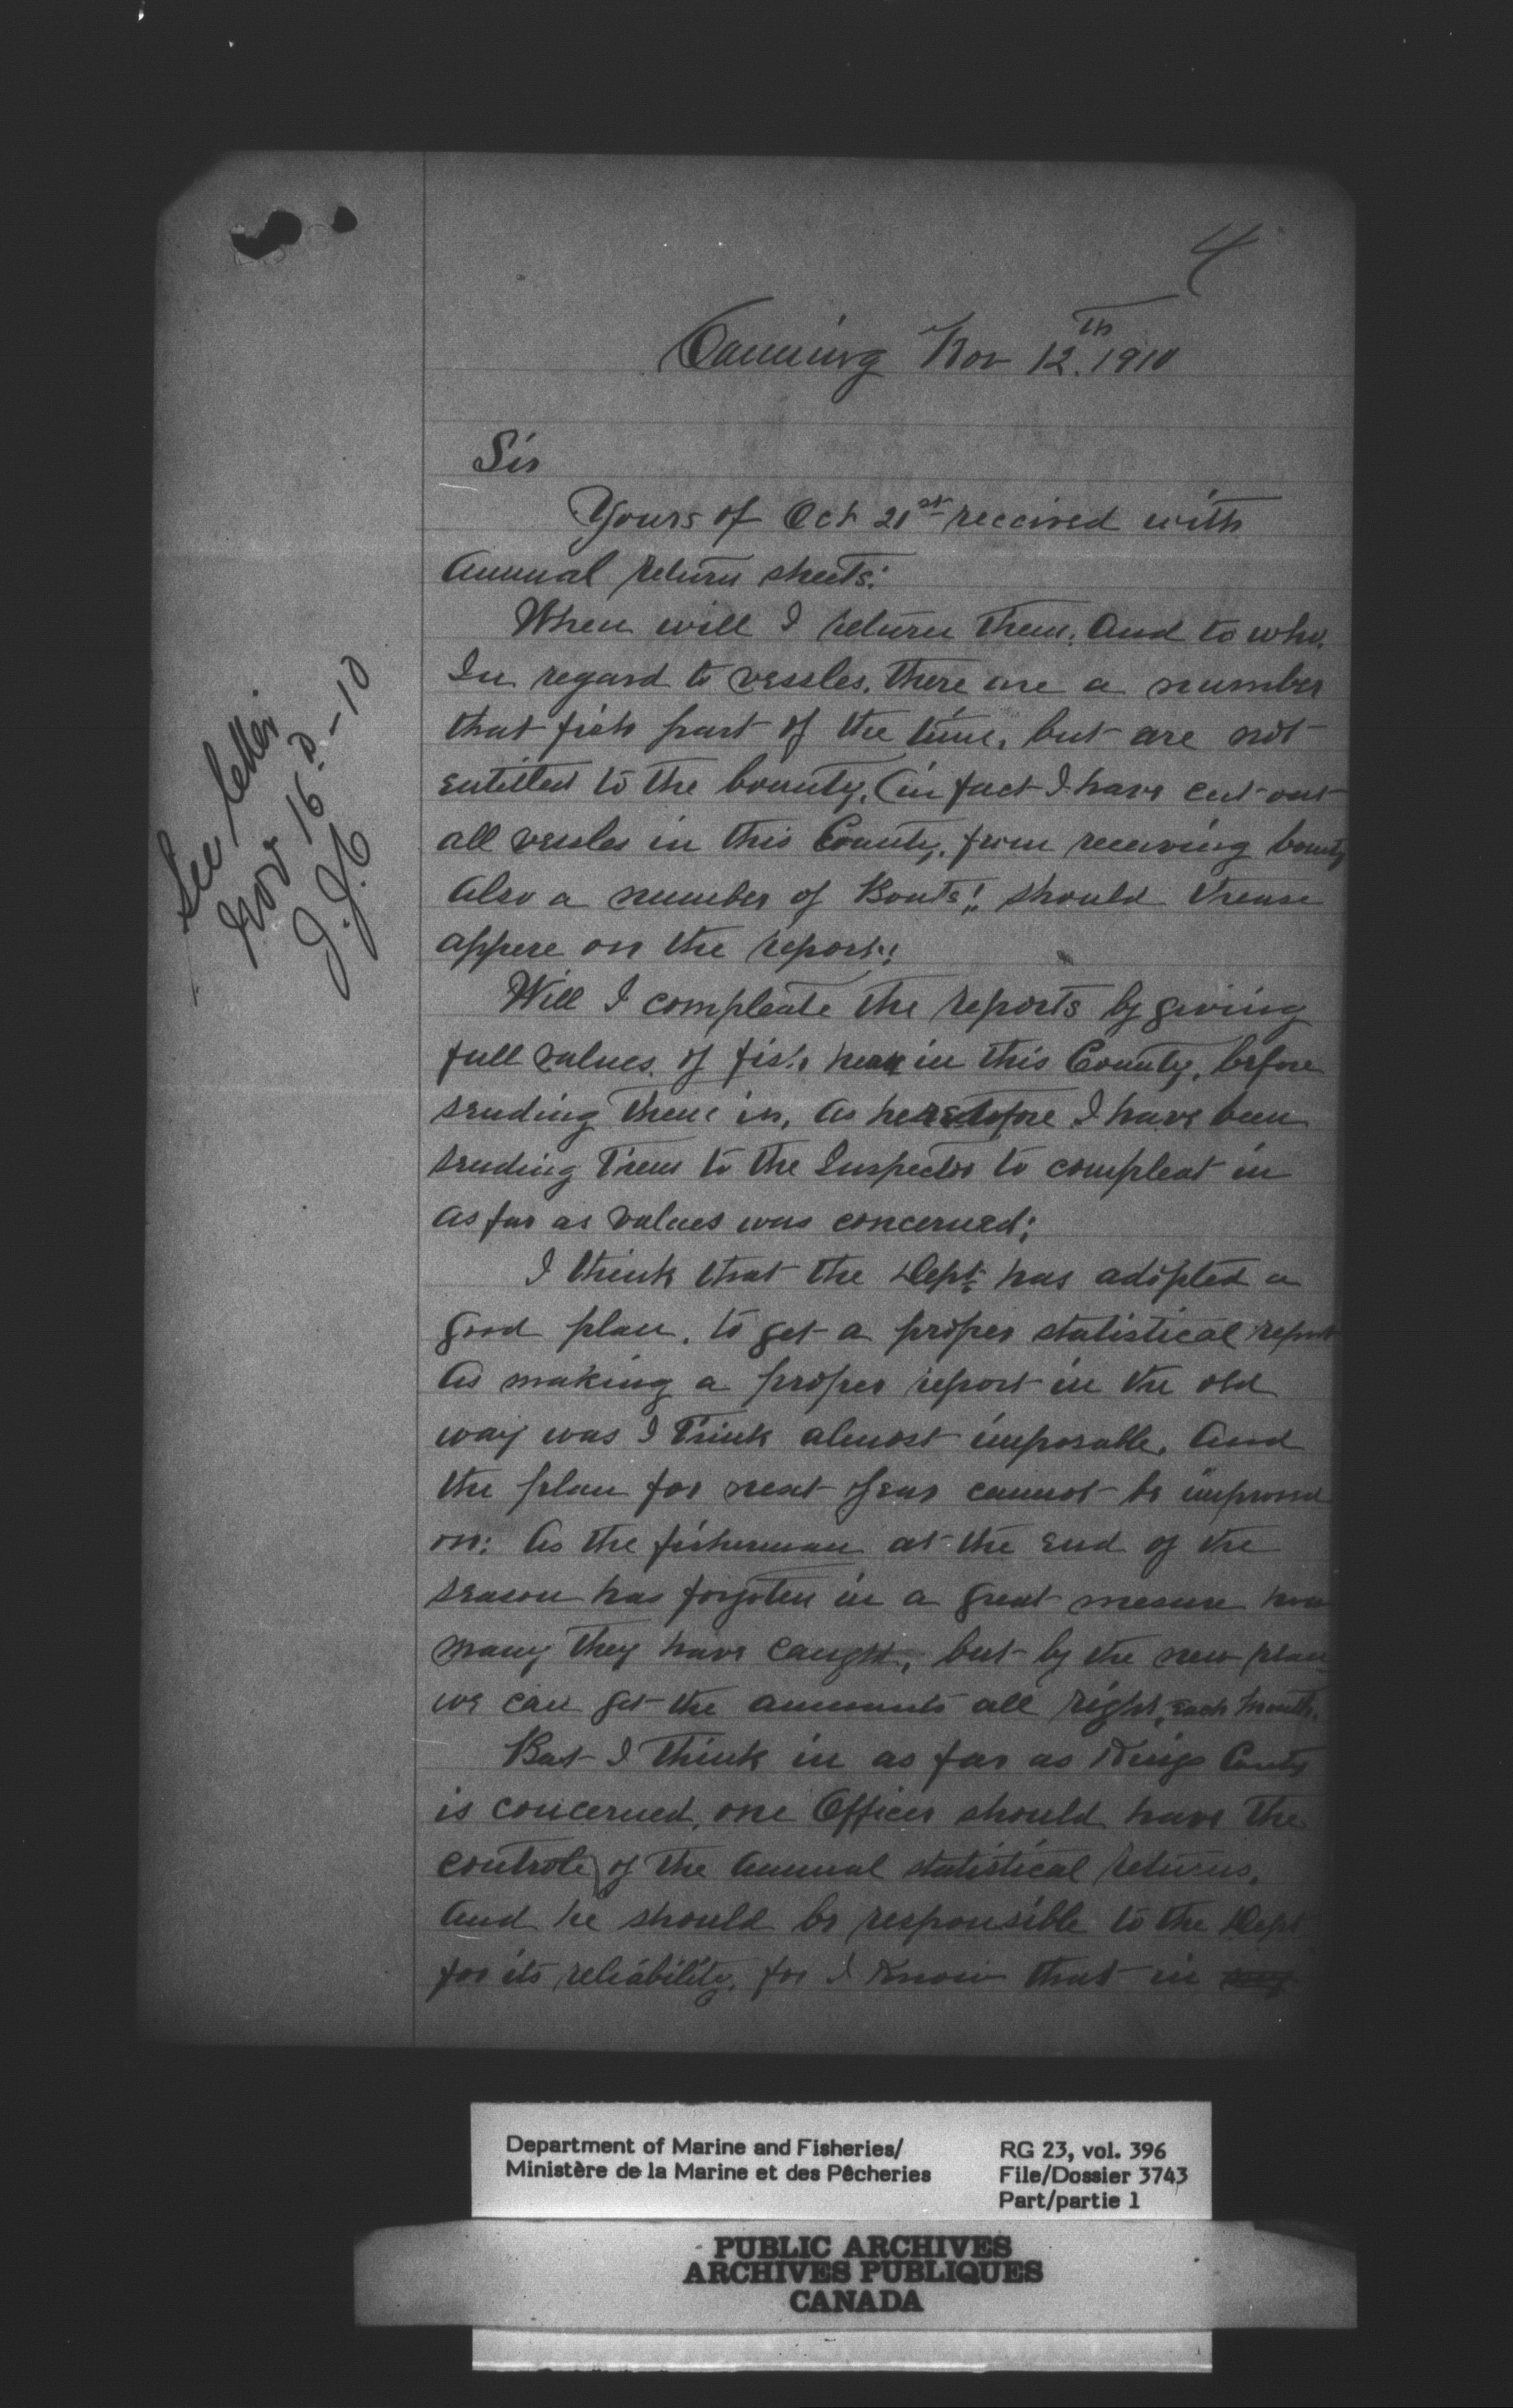 4
Canning Nov 12th. 1910
Sir
Yours of Oct 21st received with
annual return sheets:
When will I return them. And to who.
In regard to vessles. there are a number
that fish part of the time, but are not
entitled to the bounty, (in fact I have cut out
all vessles in this County, from receiving bounty
Also a number of Boats! should
appere on the report:
Will I compleate the reports by giving
full values of fish in this County, before
sending them in, as heretofore I have been
sending them to the Inspector to compleat in
as far as values was concerned;
I think that the Dept. has adopted a
good plan, to get a proper statistical report
As making a proper report in the old
way was I think almost imposable. And
the plan for next year cannot be improved
on: As the fisherman at the end of the
season has forgoten in a great mesure how
many they have caught, but by the new plan
we can get the amounts all right, each month.
But I think in as far as Kings County
is concerned, one Officer should have the
controle of the annual statistical returns.
And he should be responsible to the Dept
for its reliability, for I know that in
See letter
Nov 16 -10
Department of Marine and Fisheries/
Ministère de la Marine et des Pêcheries
RG 23, vol. 396
File/Dossier 3743
Part/partie 1
PUBLIC ARCHIVES
ARCHIVES PUBLIQUES
CANADA